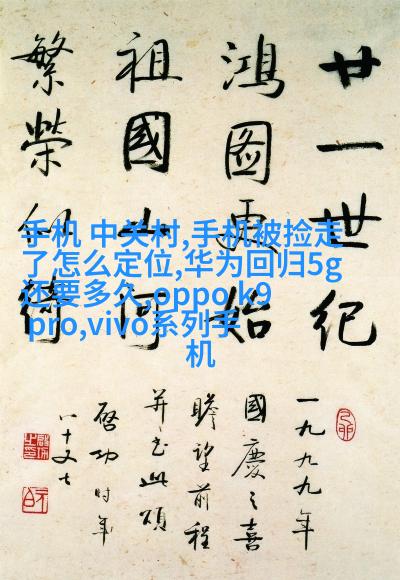 廿一世紀
鴻圖更始
祖國山河
繁榮似綺
一九九九年
國慶之喜
瞻望前程
并书此頌
啓功时年
八十又七
手机 中关村,手机被捡走
了怎么定位,华为回归5g
还要多久,oppo k9
pro,vivo系列手
机